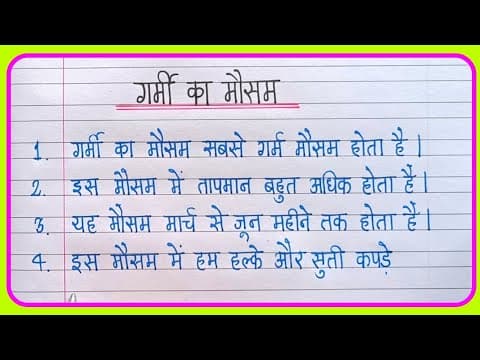 गर्मी का मौसम
1. गर्मी का मौसम सबसे गर्म मौसम होता है।
2. इस मौसम में तापमान बहुत अधिक होता है।
3. यह मौसम मार्च से जून महीने तक होता है।
4. इस मौसम में हम हल्के और सुती कपड़े